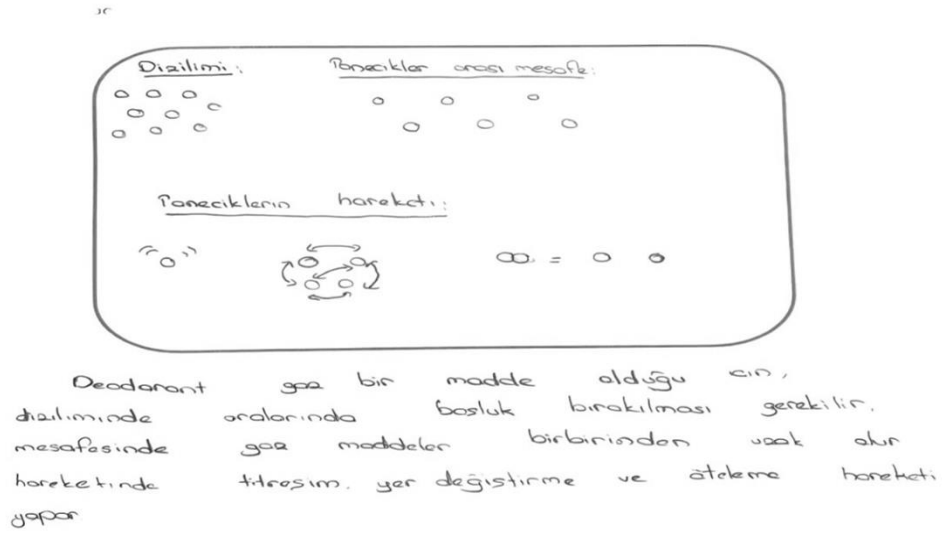 Dizilimi: Tanecikler arası mesafe:
Taneciklerin hareketi:
=
Deodorant gaz bir madde olduğu için,
diziliminde aralarında boşluk bırakılması gerekilir.
mesafesinde gaz maddeler birbirinden uzak olur
hareketinde titreşim, yer değiştirme ve öteleme hareketi
yapar